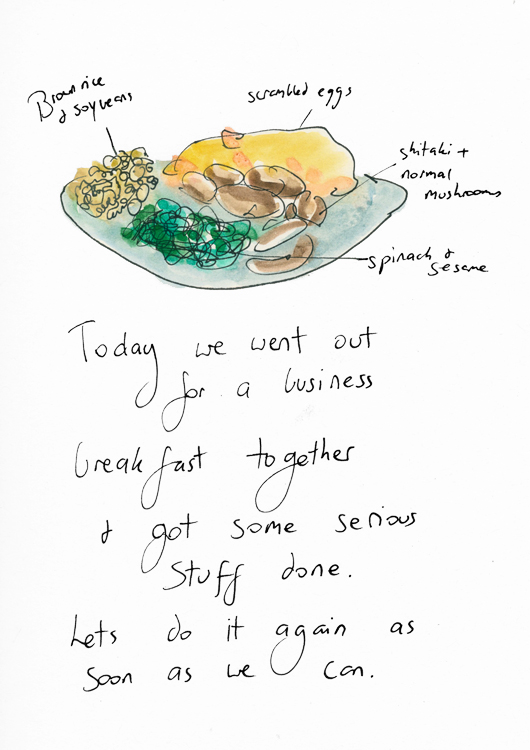 Brown rice
& soybeans
scrambled eggs
shitaki +
normal
mushrooms
spinach &
sesame
Today we went out
for a business
breakfast together
& got some serious
stuff done.
Lets do it again as
soon as we can.